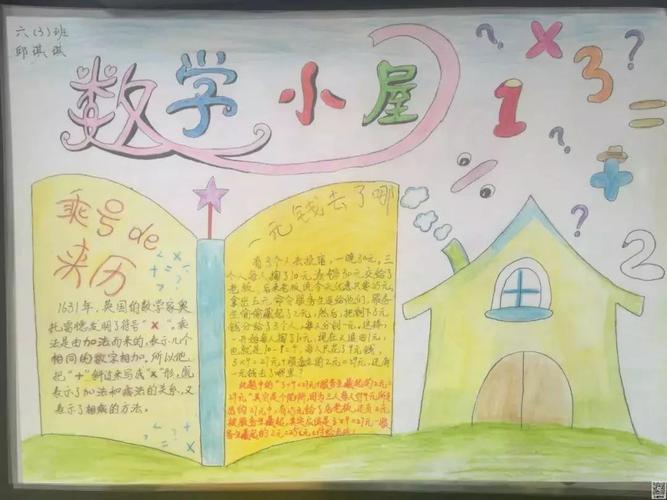 六(3)班
邱琪琪
数学小屋
? × ? 1 3 = ? ÷ + ? 2
乘号de
来历
1631年,英国的数学家奥
托雷德发明了符号"×"。乘
法是由加法而来的,表示几个
相同的数字相加,所以他
把"+"斜过来写成"×"形,既
表示了加法和乘法的关系,又
表示了相乘的方法。
一元钱去了哪
有3个人去投宿,一晚30元。三
个人每人掏了10元凑够30元交给了
老板。后来老板说今天优惠只要25元,
拿出五元命令服务生退给他们,服务
生偷偷藏起了2元,然后,把剩下3元
钱分给了3个人,每人分到一元。这样,
一开始每人掏了10元,现在又退回1元,
也就是10-1=9,每人只花了9元钱,
3×9=27元+服务生藏起的2元=29元,还有
一元钱去了哪里?
此题中的"3×9=27元+服务生藏起的2元=